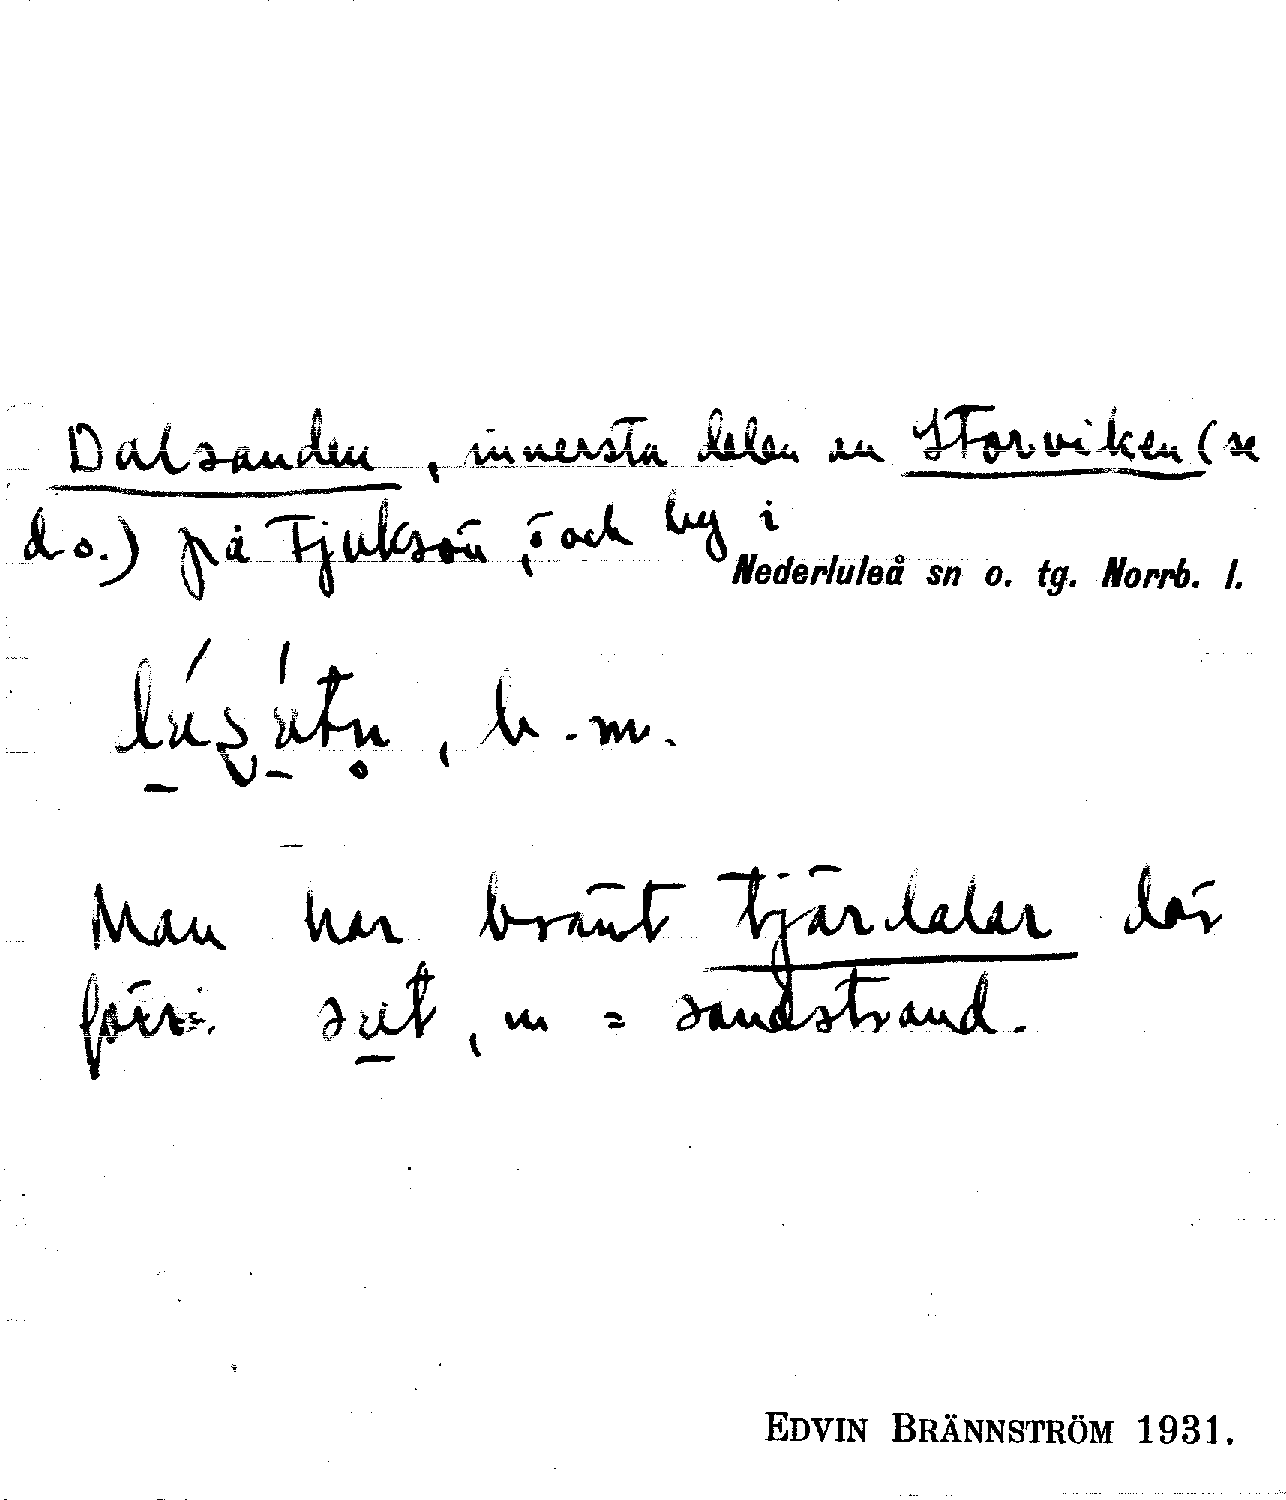 Dalsanden, innersta delen av Storviken (se
d.o.) på Tjuksön, ö och by i
Nederluleå sn o. tg. Norrb. l.
b. m.
Man har bränt tjärdalar där
förr. sat, m = sandstrand.
EDVIN BRÄNNSTRÖM 1931.